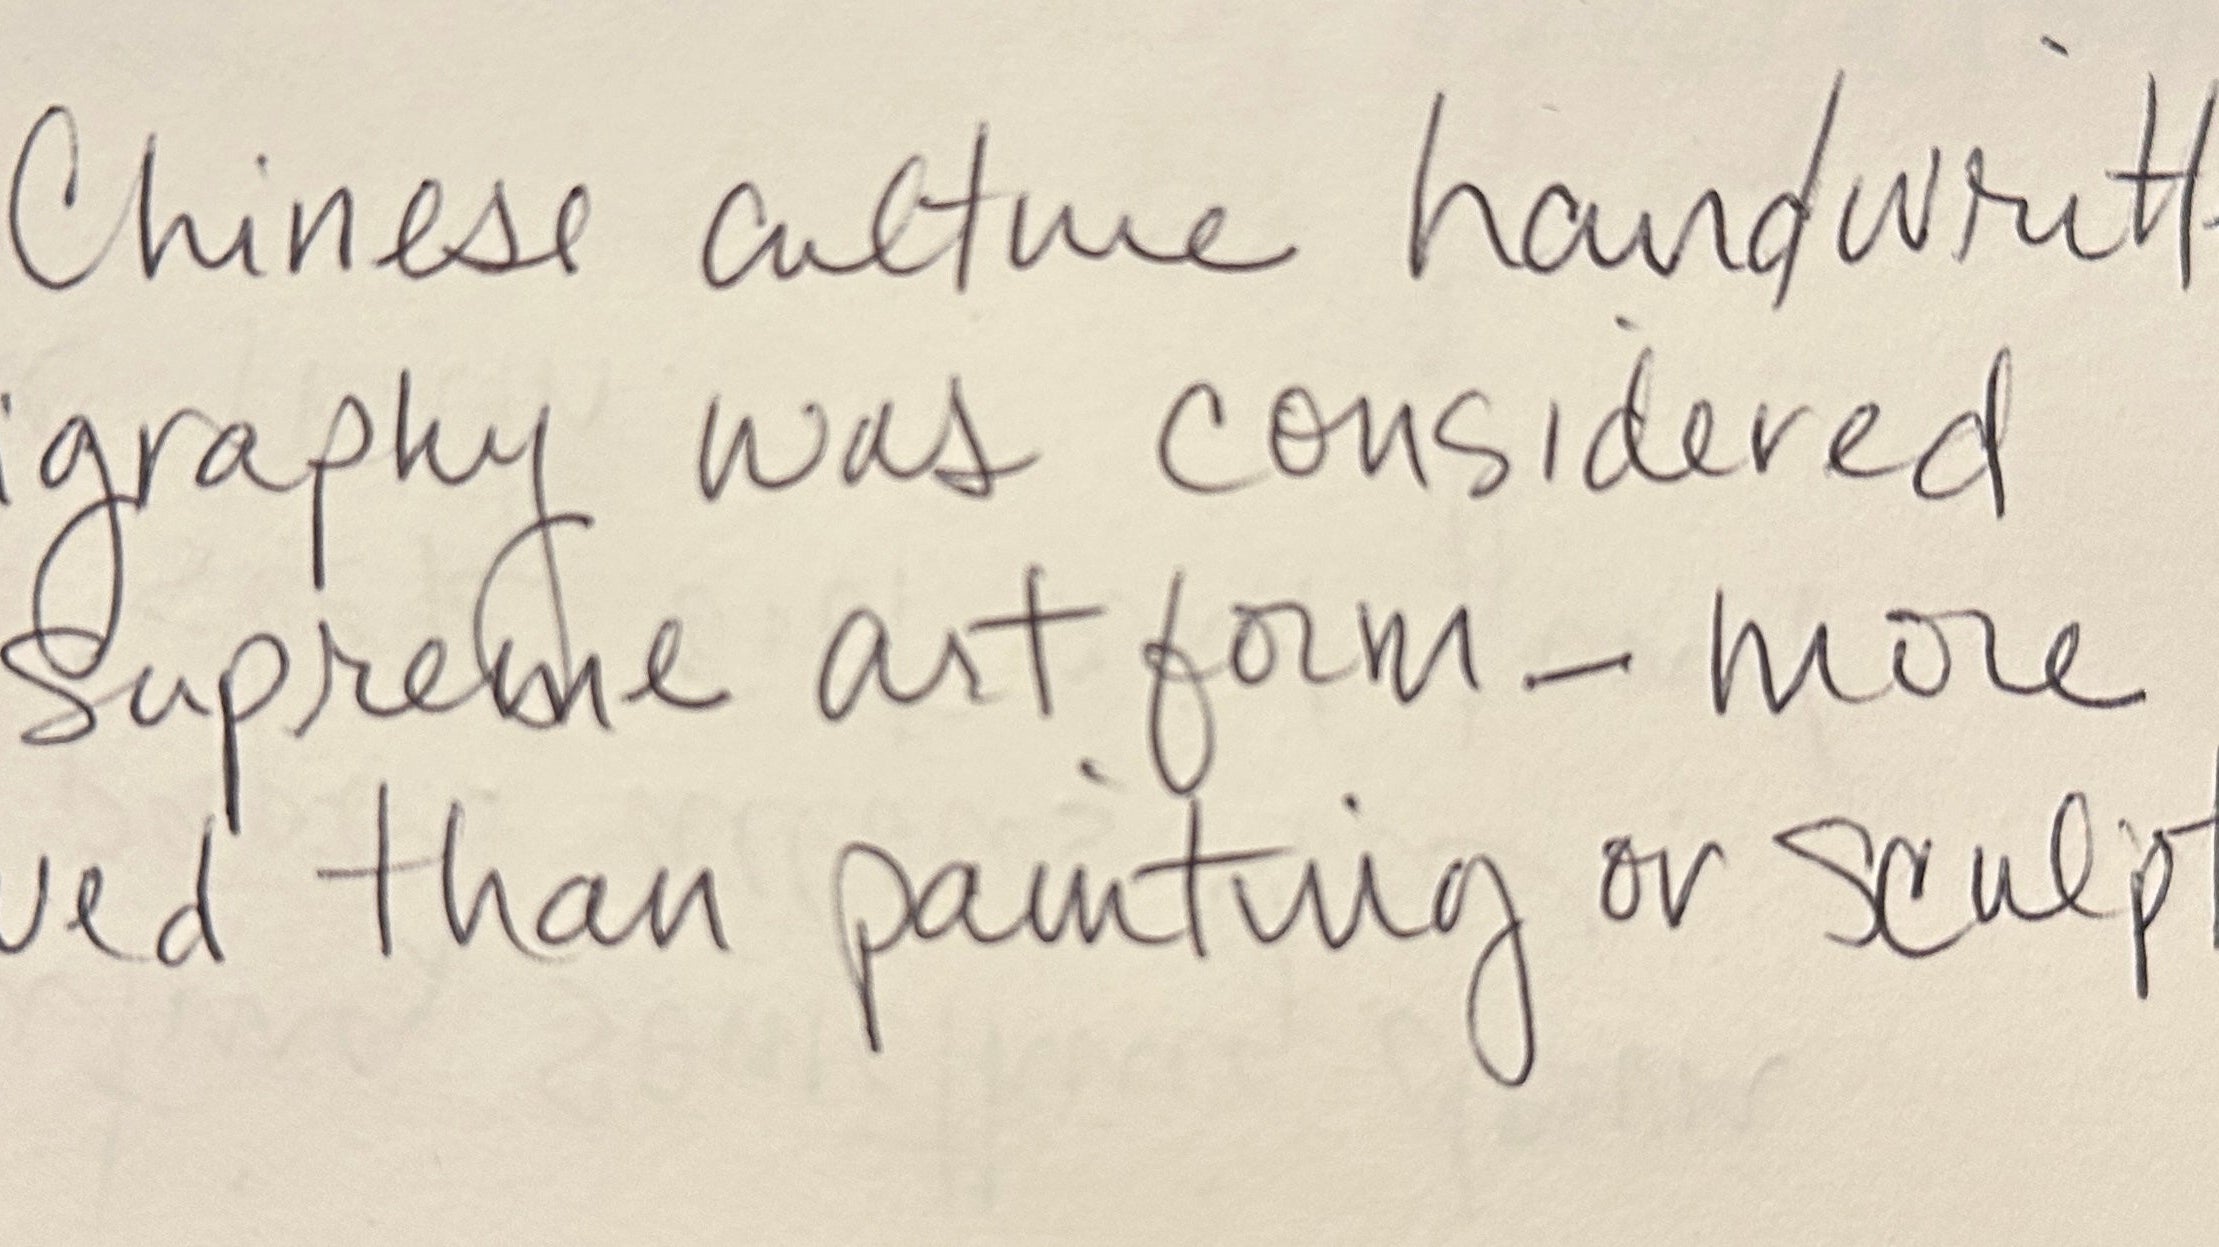 Chinese culture handwritt
igraphy was considered
Supreme art form - more
ved than painting or sculpt